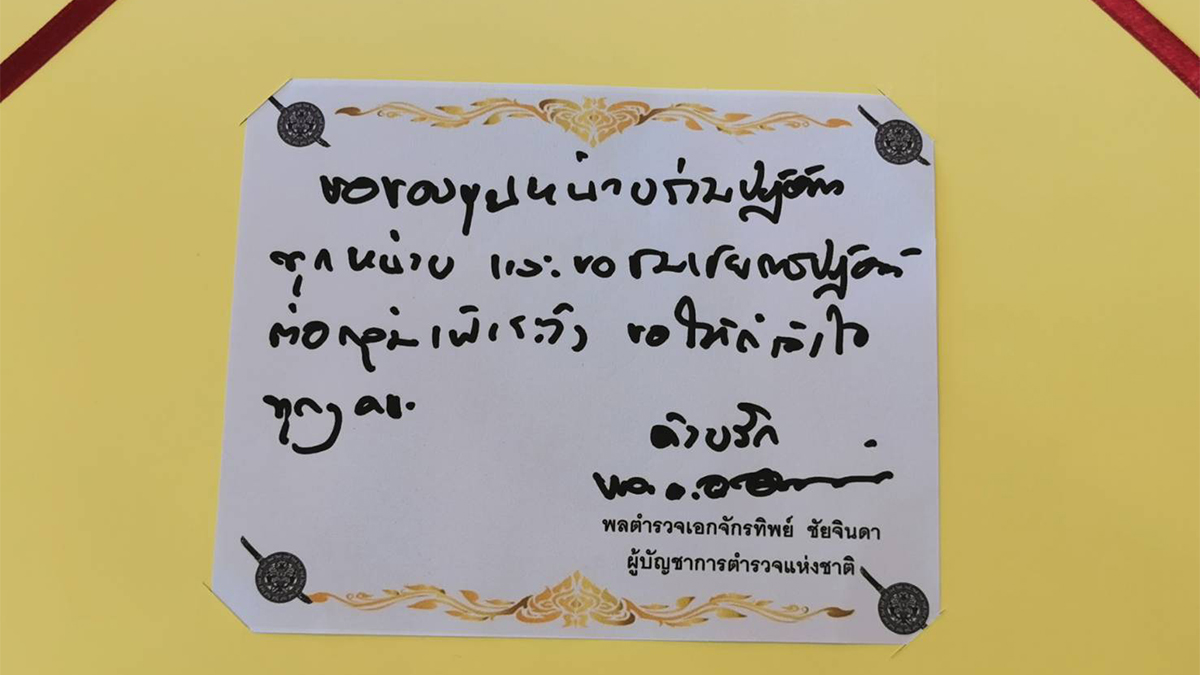 ขอขอบคุณหน่วยร่วมปฏิบัติการ
ทุกหน่วย และขอชมเชยการปฏิบัติ
ขอให้กำลังใจ
ทุกๆ คน
ด้วยรัก
พล.ต.อ.
พลตำรวจเอกจักรทิพย์ ชัยจินดา
ผู้บัญชาการตำรวจแห่งชาติ